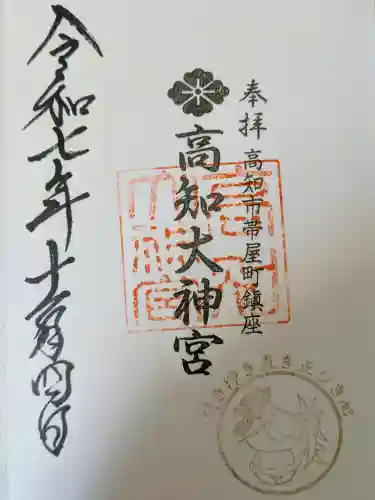 奉拝
高知市帯屋町鎮座
高知大神宮
令和七年十一月四日